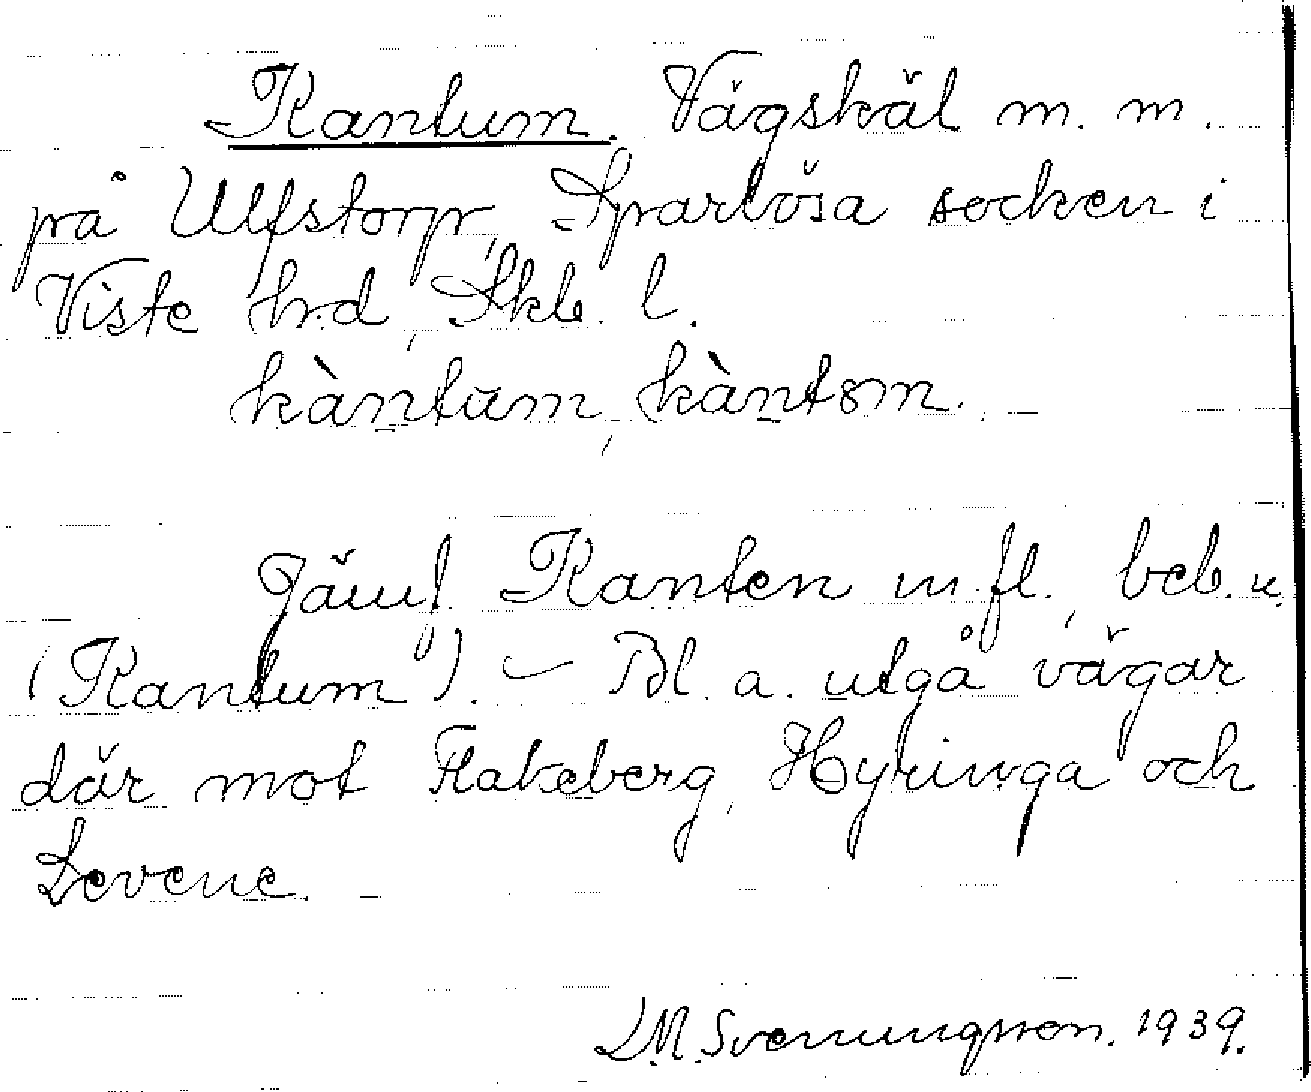 Kantum. Vägskäl m. m.
på Ulfstorp, Sparlösa socken i
Viste hrd, Skb. l.
kàntum, kàntom.
Jämf. Kanten m. fl., beb. n.
(Kantum). – Bl. a. utgå vägar
där mot Flakeberg, Hyringa och
Levene.
L. M. Svenungsson. 1939.